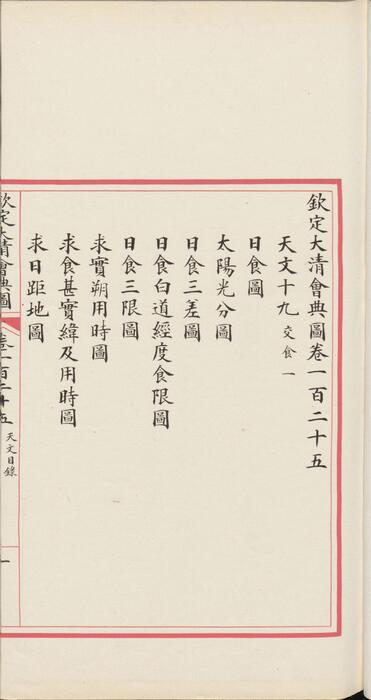 欽定大清會典圖卷一百二十五
天文十九 交食一
日食圖
太陽光分圖
日食三差圖
日食白道經度食限圖
日食三限圖
求實朔用時圖
求食甚實緯及用時圖
求日距地圖
欽定大清會典圖 卷一百二十五 天文目錄 一